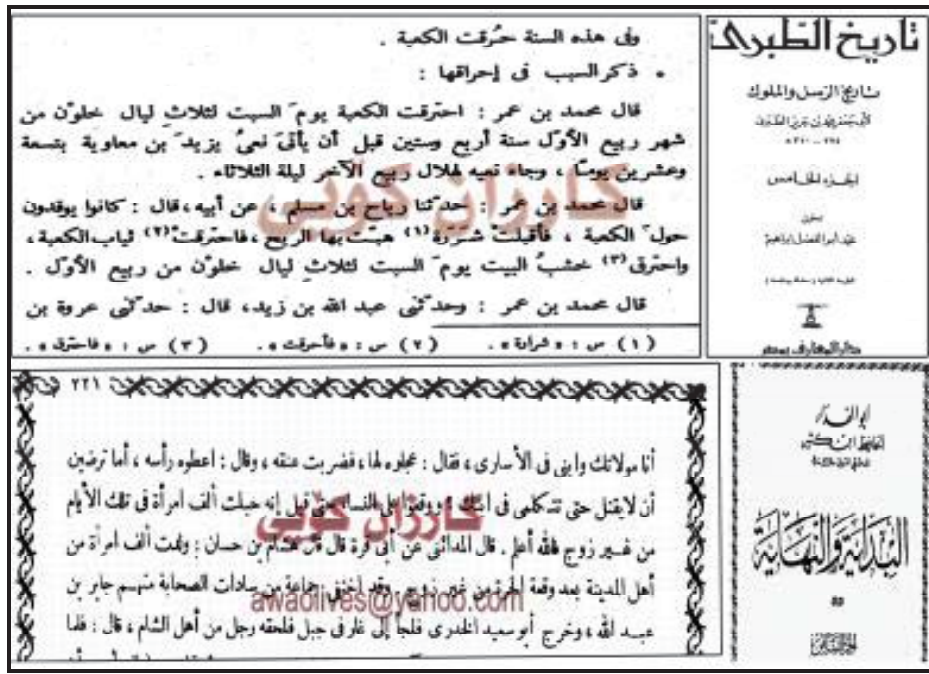 وفى هذه السنة حُرقت الكعبة .
• ذكر السبب فى إحراقها :
قال محمد بن عمر : احترقت الكعبة يومَ السبت لثلاثِ ليال خلوْن من
شهر ربيع الأوّل سنة أربع وستين قبل أن يأتىَ نعىُ يزيدَ بن معاوية بتسعة
وعشرين يوماً ، وجاء نعيه لهلال ربيع الآخر ليلة الثلاثاء .
قال محمد بن عمر : حدّثنا رياح بن مسلم ، عن أبيه ، قال : كانوا يوقدون
حول الكعبة ، فأقبلتْ شَرَرة (١) هبّتْ بها الريح ، فاحترقتْ (٢) ثياب الكعبة ،
واحترق (٣) خشبُ البيت يومَ السبت لثلاثِ ليال خلوْن من ربيع الأوّل .
قال محمد بن عمر : وحدّثنى عبد الله بن زيد، قال : حدّثنى عروة بن
(١) س : « شرارة » . (٢) س : « فأحرقت » . (٣) س : « فاحترق » .
كارزان كؤيى
تاريخ الطبرى
تاريخ الرسل والملوك
لأبى جعفر محمد بن جرير الطبرى
٢٢٤ - ٣١٠ هـ
الجزء الخامس
تحقيق
محمد أبو الفضل إبراهيم
دار المعارف بمصر
٢٢١
أنا مولاتك وابنى فى الأسارى ، فقال : عجلوه لها ، فضربت عنقه ، وقال : اعطوه رأسه ، أما ترضين
أن لا يقتل حتى تتكلمى فى ابنك ؟ ووقعوا على النساء حتى قيل إنه حبلت ألف امرأة فى تلك الأيام
من غير زوج فالله أعلم . قال المدائنى عن أبى قرة قال قال هشام بن حسان : ولدت ألف امرأة من
أهل المدينة بعد وقعة الحرة من غير زوج . وقد اختفى جماعة من سادات الصحابة منهم جابر بن
عبد الله ، وخرج أبو سعيد الخدرى فلجأ إلى غار فى جبل فلحقه رجل من أهل الشام ، قال : فلما
كارزان كؤيى
awaolives@yahoo.com
أبو الفداء
الحافظ ابن كثير
البداية والنهاية